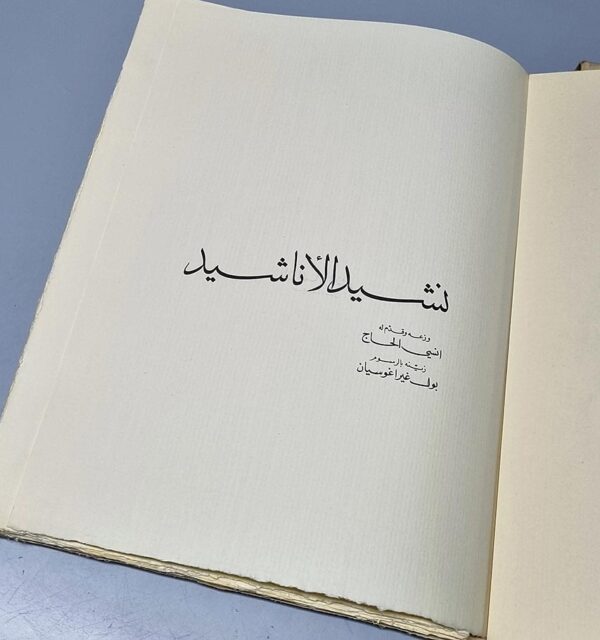 نشيد الأناشيد
وزعه وقدم له
انسي الحاج
زينه بالرسوم
بول غيراغوسيان